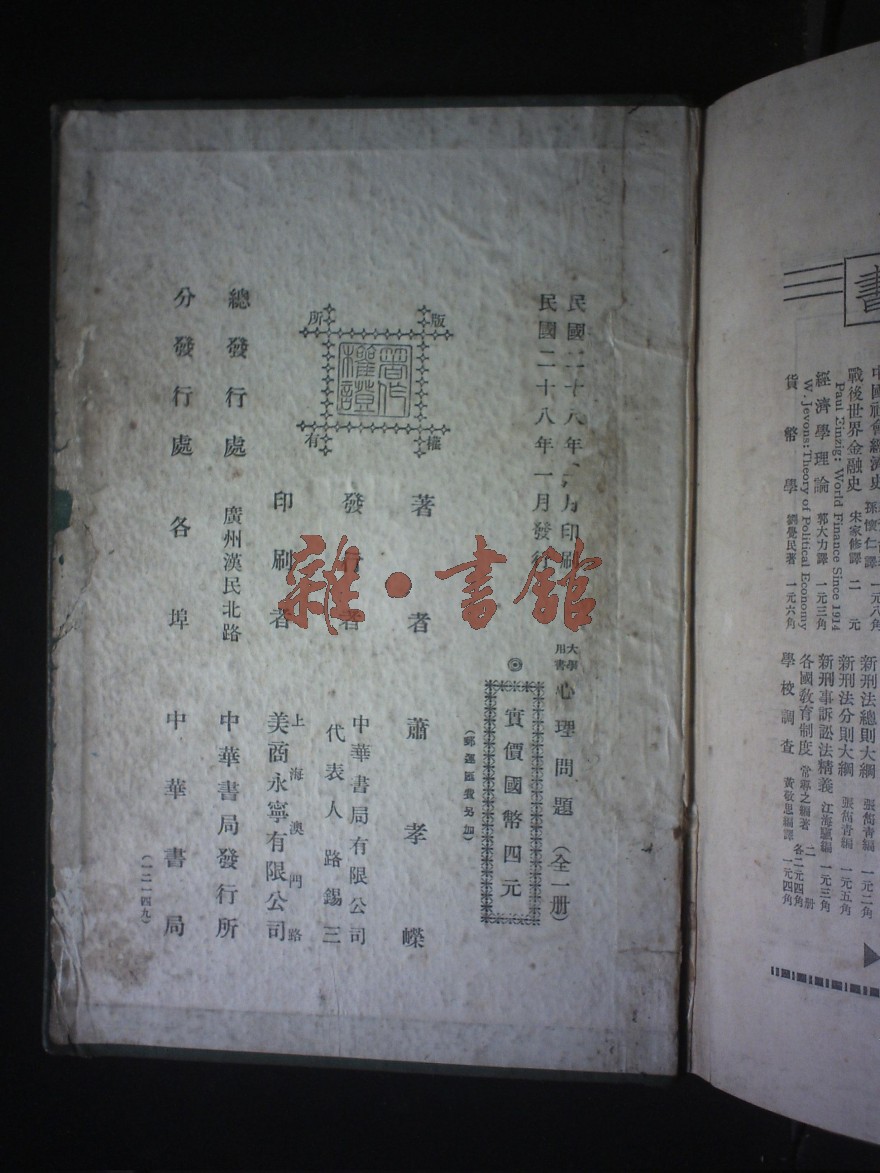 書
戰後世界金融史 宋家修譯 二元
Paul Einzig: World Finance Since 1914
經濟學理論 郭大力譯 一元三角
W. Jevons: Theory of Political Economy
貨幣學 劉覺民著 一元六角
新刑法總則大綱 張蔚青編 一元二角
新刑法分則大綱 張蔚青編 一元五角
新刑事訴訟法精義 江海颿編 一元三角
各國教育制度 常導之編著 二册 各二元四角
學校調查 黃敬思編譯 一元四角
民國二十八年一月印刷
民國二十八年一月發行
大學用書 心理問題(全一册)
◎ 實價國幣四元
(郵運匯費另加)
版權所有
著作權證
著者 蕭孝嶸
發行者 中華書局有限公司
代表人路錫三
印刷者 上海澳門路
美商永寧有限公司
總發行處 廣州漢民北路 中華書局發行所
分發行處 各埠 中華書局
(一二一四九)
雜·書館